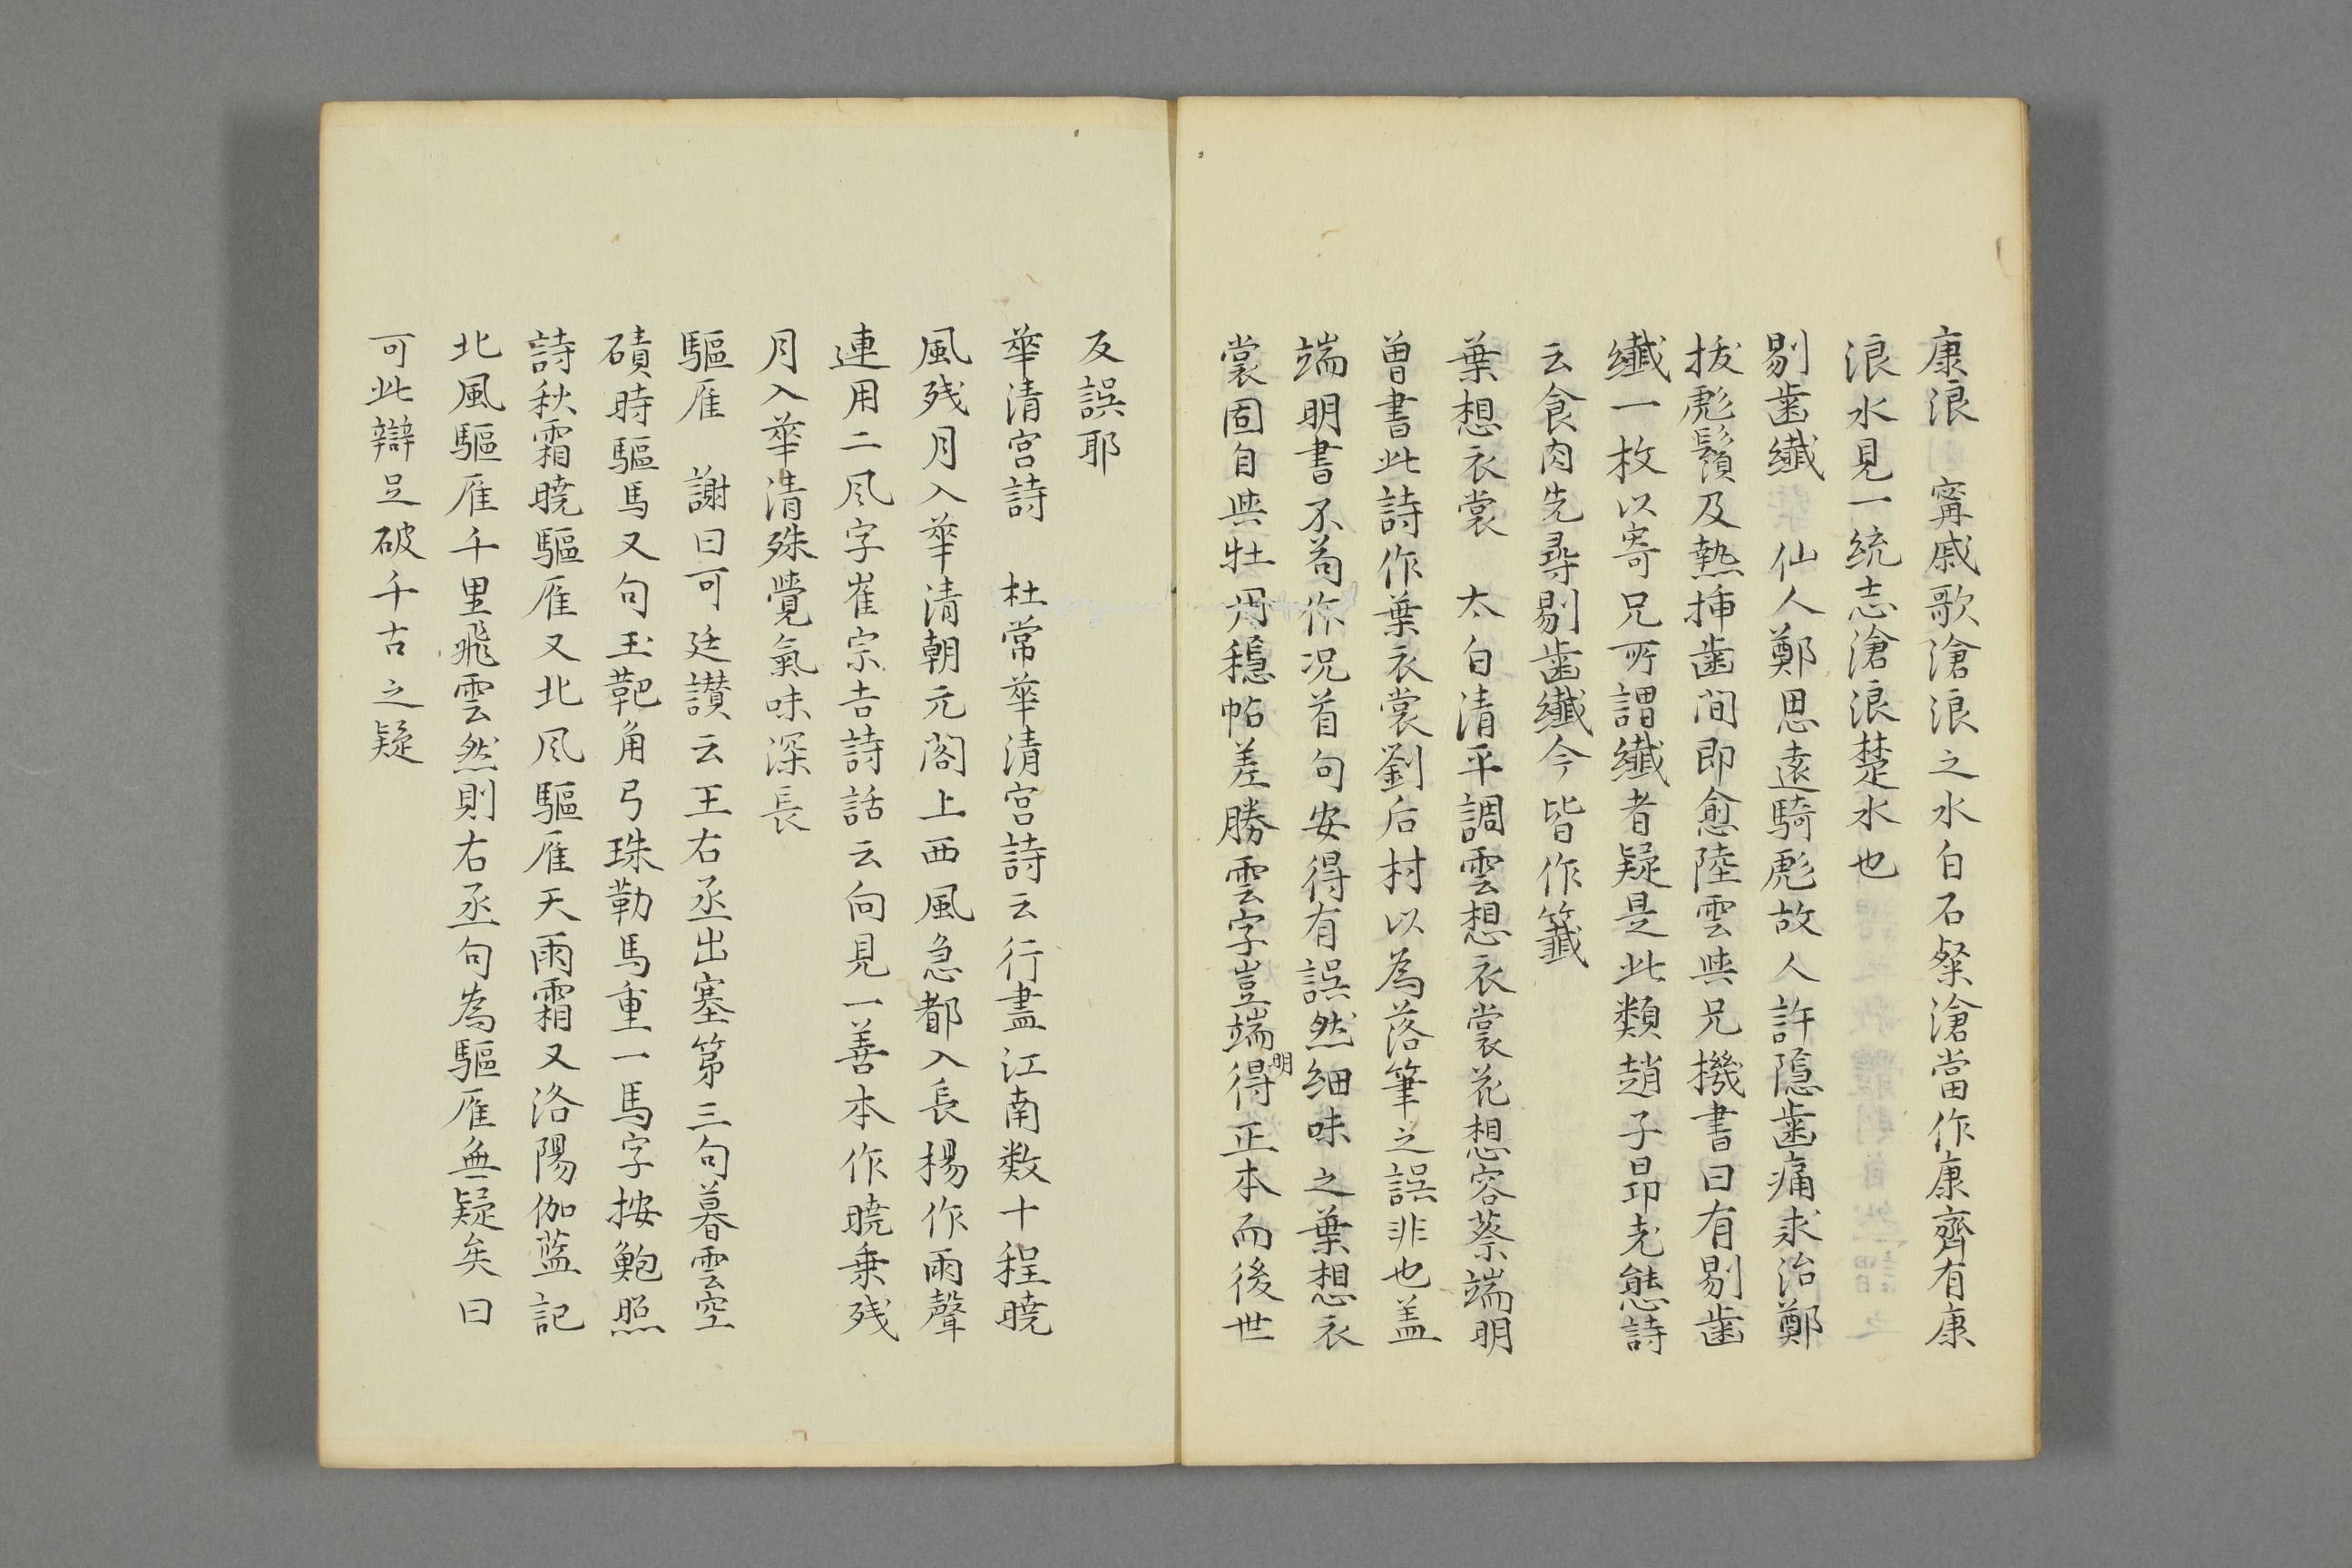 康浪　寗戚歌滄浪之水白石粲滄當作康齊有康
浪水見一統志滄浪楚水也
剔歯纎　仙人鄭思遠騎彪故人許隠歯痛求治鄭
拔彪鬚及熱揷歯间即愈陸雲與兄機書曰有剔歯
纎一枚以寄兄所謂纎者疑是此類趙子昂老態詩
云食肉先尋剔歯纎今皆作籖
葉想衣裳　太白清平調雲想衣裳花想容蔡端明
曽書此詩作葉衣裳劉后村以為落筆之誤非也盖
端明書不苟作况首句安得有誤然细味之葉想衣
裳固自與牡丹穏帖差勝雲字豈端明得正本而後世
反誤耶
華清宫詩　杜常華清宫詩云行盡江南数十程暁
風残月入華清朝元阁上西風急都入長楊作雨聲
連用二风字崔宗吉詩話云向見一善本作暁乗残
月入華清殊覺氣味深長
驅雁　謝曰可廷讃云王右丞出塞第三句暮雲空
磧時驅馬又句玉靶角弓珠勒馬重一馬字按鮑照
詩秋霜暁驅雁又北风驅雁天雨霜又洛陽伽藍記
北風驅雁千里飛雲然則右丞句為驅雁無疑矣曰
可此辯足破千古之疑